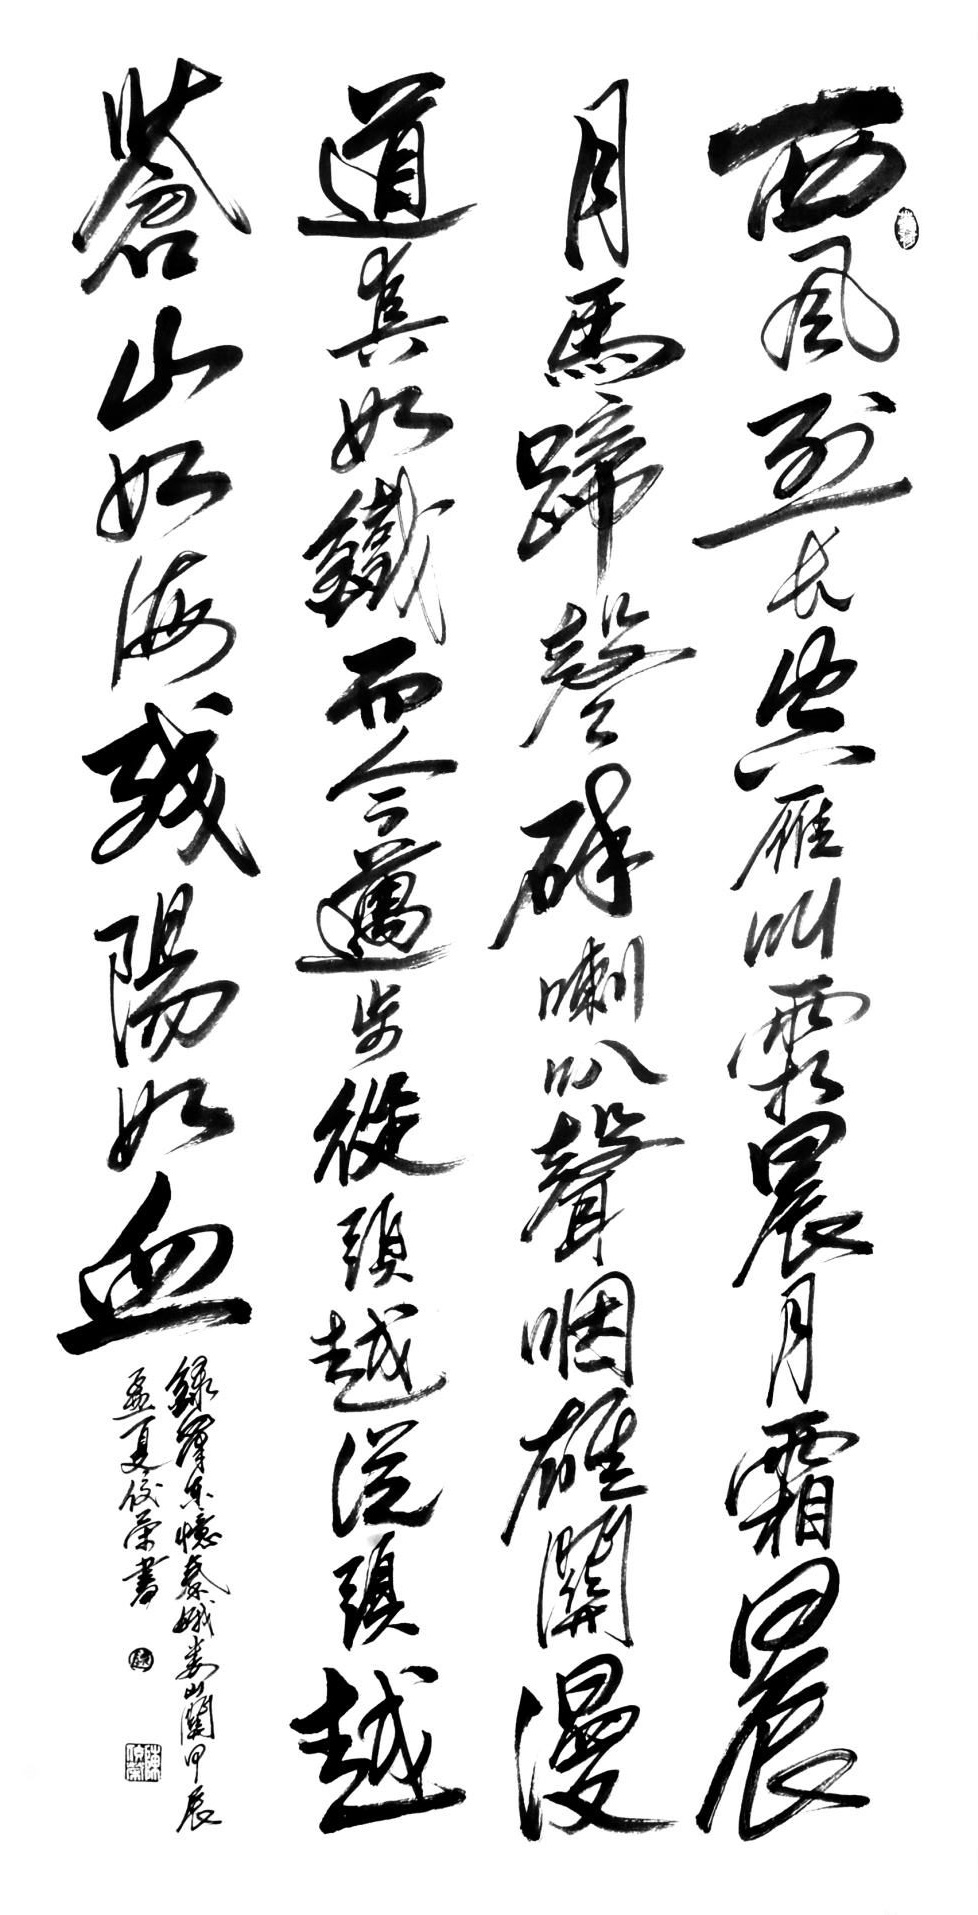 西風烈長空雁叫霜晨月霜晨
月馬蹄聲碎喇叭聲咽雄關漫
道真如鐵而今邁步從頭越從頭越
蒼山如海殘陽如血
錄澤东憶秦娥娄山關甲辰
孟夏俊荣書